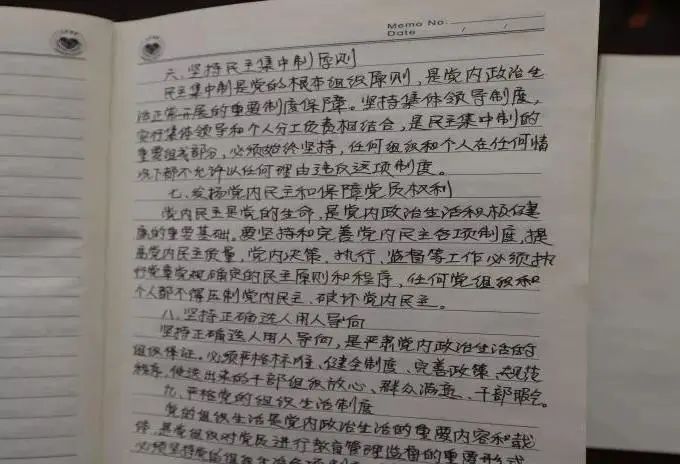 Memo No.
Date / /
六、坚持民主集中制原则
民主集中制是党的根本组织原则,是党内政治生
活正常开展的重要制度保障。坚持集体领导制度,
实行集体领导和个人分工负责相结合,是民主集中制的
重要组成部分,必须始终坚持,任何组织和个人在任何情
况下都不允许以任何理由违反这项制度。
七、发扬党内民主和保障党员权利
党内民主是党的生命,是党内政治生活积极健
康的重要基础。要坚持和完善党内民主各项制度,提
高党内民主质量,党内决策、执行、监督等工作必须执
行党章党规确定的民主原则和程序,任何党组织和
个人都不得压制党内民主、破坏党内民主。
八、坚持正确选人用人导向
坚持正确选人用人导向,是严肃党内政治生活的
组织保证。必须严格标准、健全制度、完善政策、规范
程序,使选出来的干部组织放心、群众满意、干部服气。
九、严格党的组织生活制度
党的组织生活是党内政治生活的重要内容和载
体,是党组织对党员进行教育管理监督的重要形式
必须坚持党的组织生活